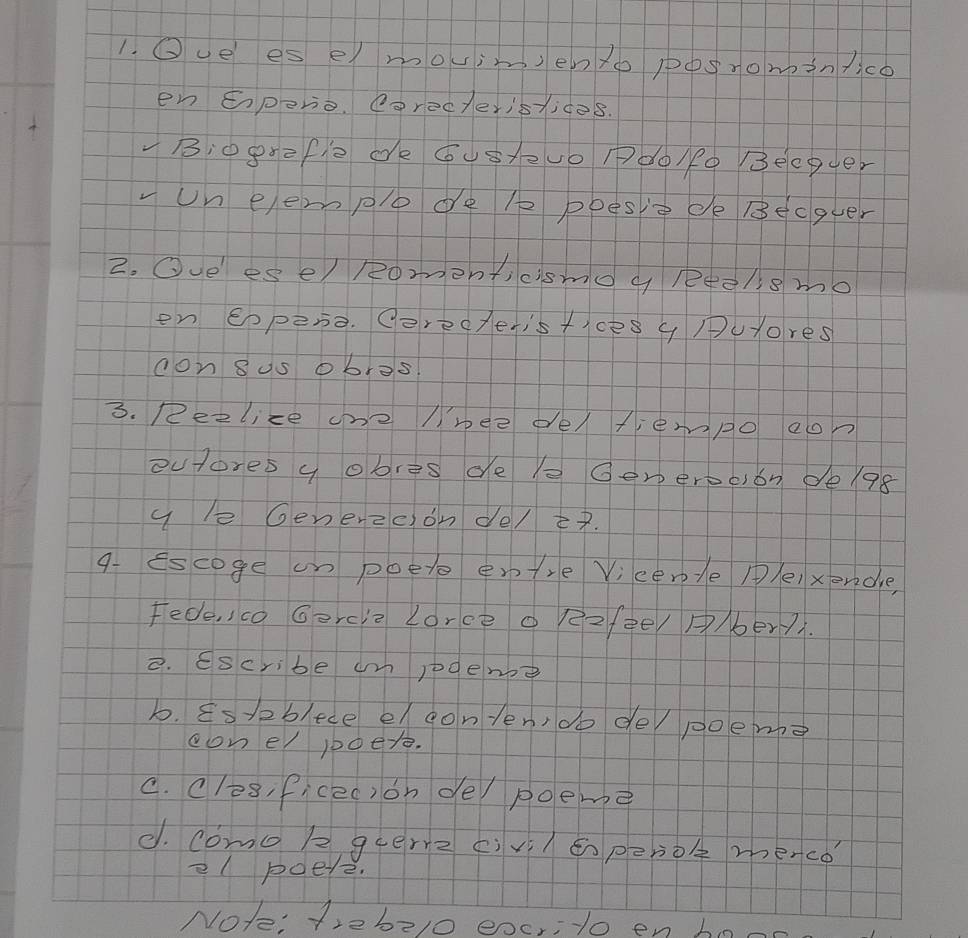 1. Qué es el movimiento posromántico
en España. Características.
✓ Biografía de Gustavo Adolfo Bécquer
✓ Un ejemplo de la poesía de Bécquer
2. Qué es el Romanticismo y Realismo
en España. Características y Autores
con sus obras.
3. Realice una línea del tiempo con
autores y obras de la Generación del 98
y la Generación del 27.
4- Escoge un poeta entre Vicente Aleixandre,
Federico García Lorca o Rafael Alberti.
a. Escribe un poema
b. Establece el contenido del poema
con el poeta.
c. Clasificación del poema
d. cómo la guerra civil Española marcó
al poeta.
Nota: trabajo escrito en